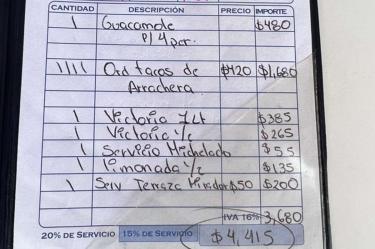 CANTIDAD DESCRIPCIÓN PRECIO IMPORTE
1 Guacamole $480
P/4 per.
1111 Ord tacos de $420 $1,680
Arrachera
1 Victoria 1Lt $385
1 Victoria 1/2 $265
1 Servicio Michelado $55
1 limonada 1/2 $135
1 Serv Terraza Mirador $50 $200
IVA 16% 3,680
20% DE SERVICIO 15% DE SERVICIO $4,415